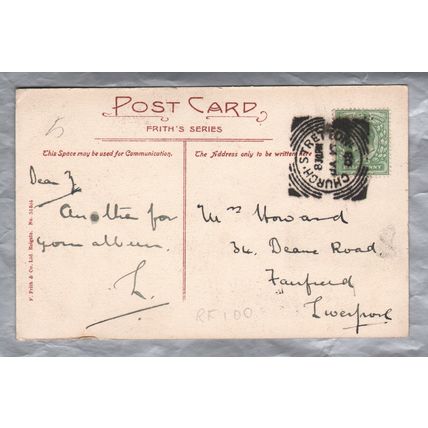 POST CARD
FRITH'S SERIES
This Space may be used for Communication.
The Address only to be written
CHURCH·STRETTON
Dear
Another for
your album.
L.
Mrs Howard
34, Deane Road
Fairfield
Liverpool
RF100
F. Frith & Co. Ltd. Reigate.